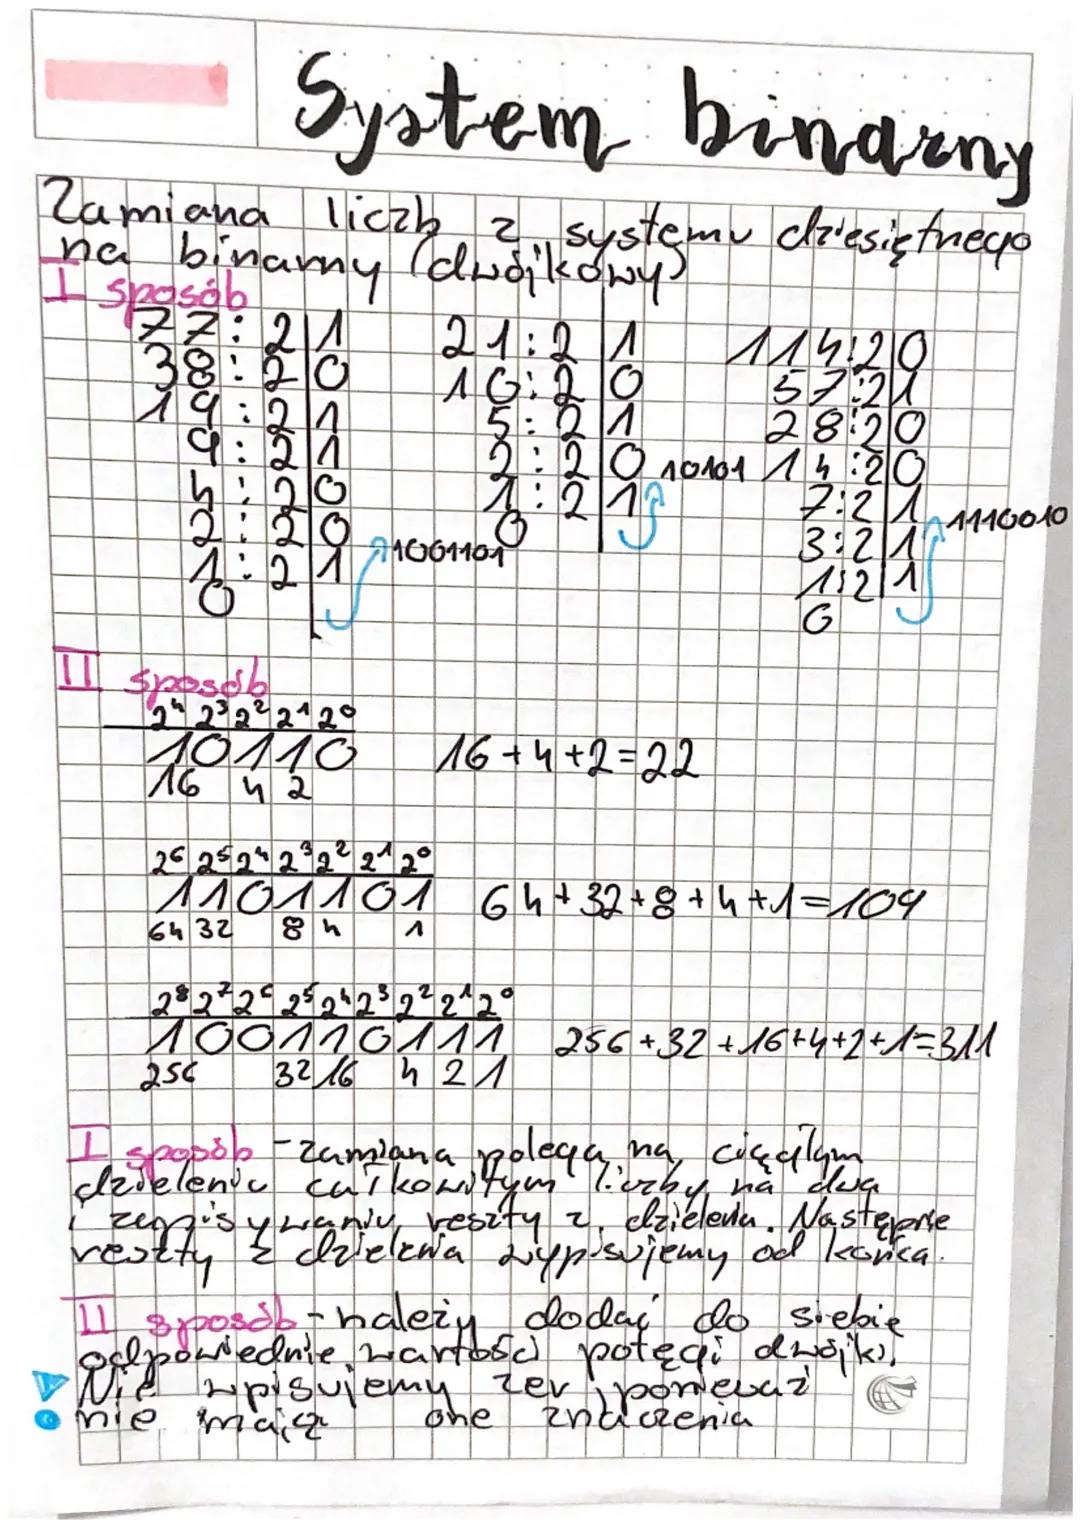 System binarny
Zamiana liczb z systemu dziesiętnego
na binarny (dwójkowy)
I sposób
77:2|1
38:2|0
19:2|1
9:2|1
4:2|0
2:2|0
1:2|1
0
1001101
21:2|1
10:2|0
5:2|1
2:2|0
1:2|1
0
10101
114:2|0
57:2|1
28:2|0
14:2|0
7:2|1
3:2|1
1:2|1
0
1110010
II sposób
2⁴ 2³ 2² 2¹ 2⁰
10110 16+4+2=22
16 4 2
2⁶ 2⁵ 2⁴ 2³ 2² 2¹ 2⁰
1101101 64+32+8+4+1=109
64 32 8 4 1
2⁸ 2⁷ 2⁶ 2⁵ 2⁴ 2³ 2² 2¹ 2⁰
100110111 256+32+16+4+2+1=311
256 32 16 4 2 1
I sposób - zamiana polega na ciągłym
dzieleniu całkowitym liczby na dwa
i zapisywaniu reszty z dzielenia. Następnie
reszty z dzielenia wypisujemy od końca.
II sposób - należy dodać do siebie
odpowiednie wartości potęgi dwójki.
Nie wpisujemy zer, ponieważ
nie mają one znaczenia